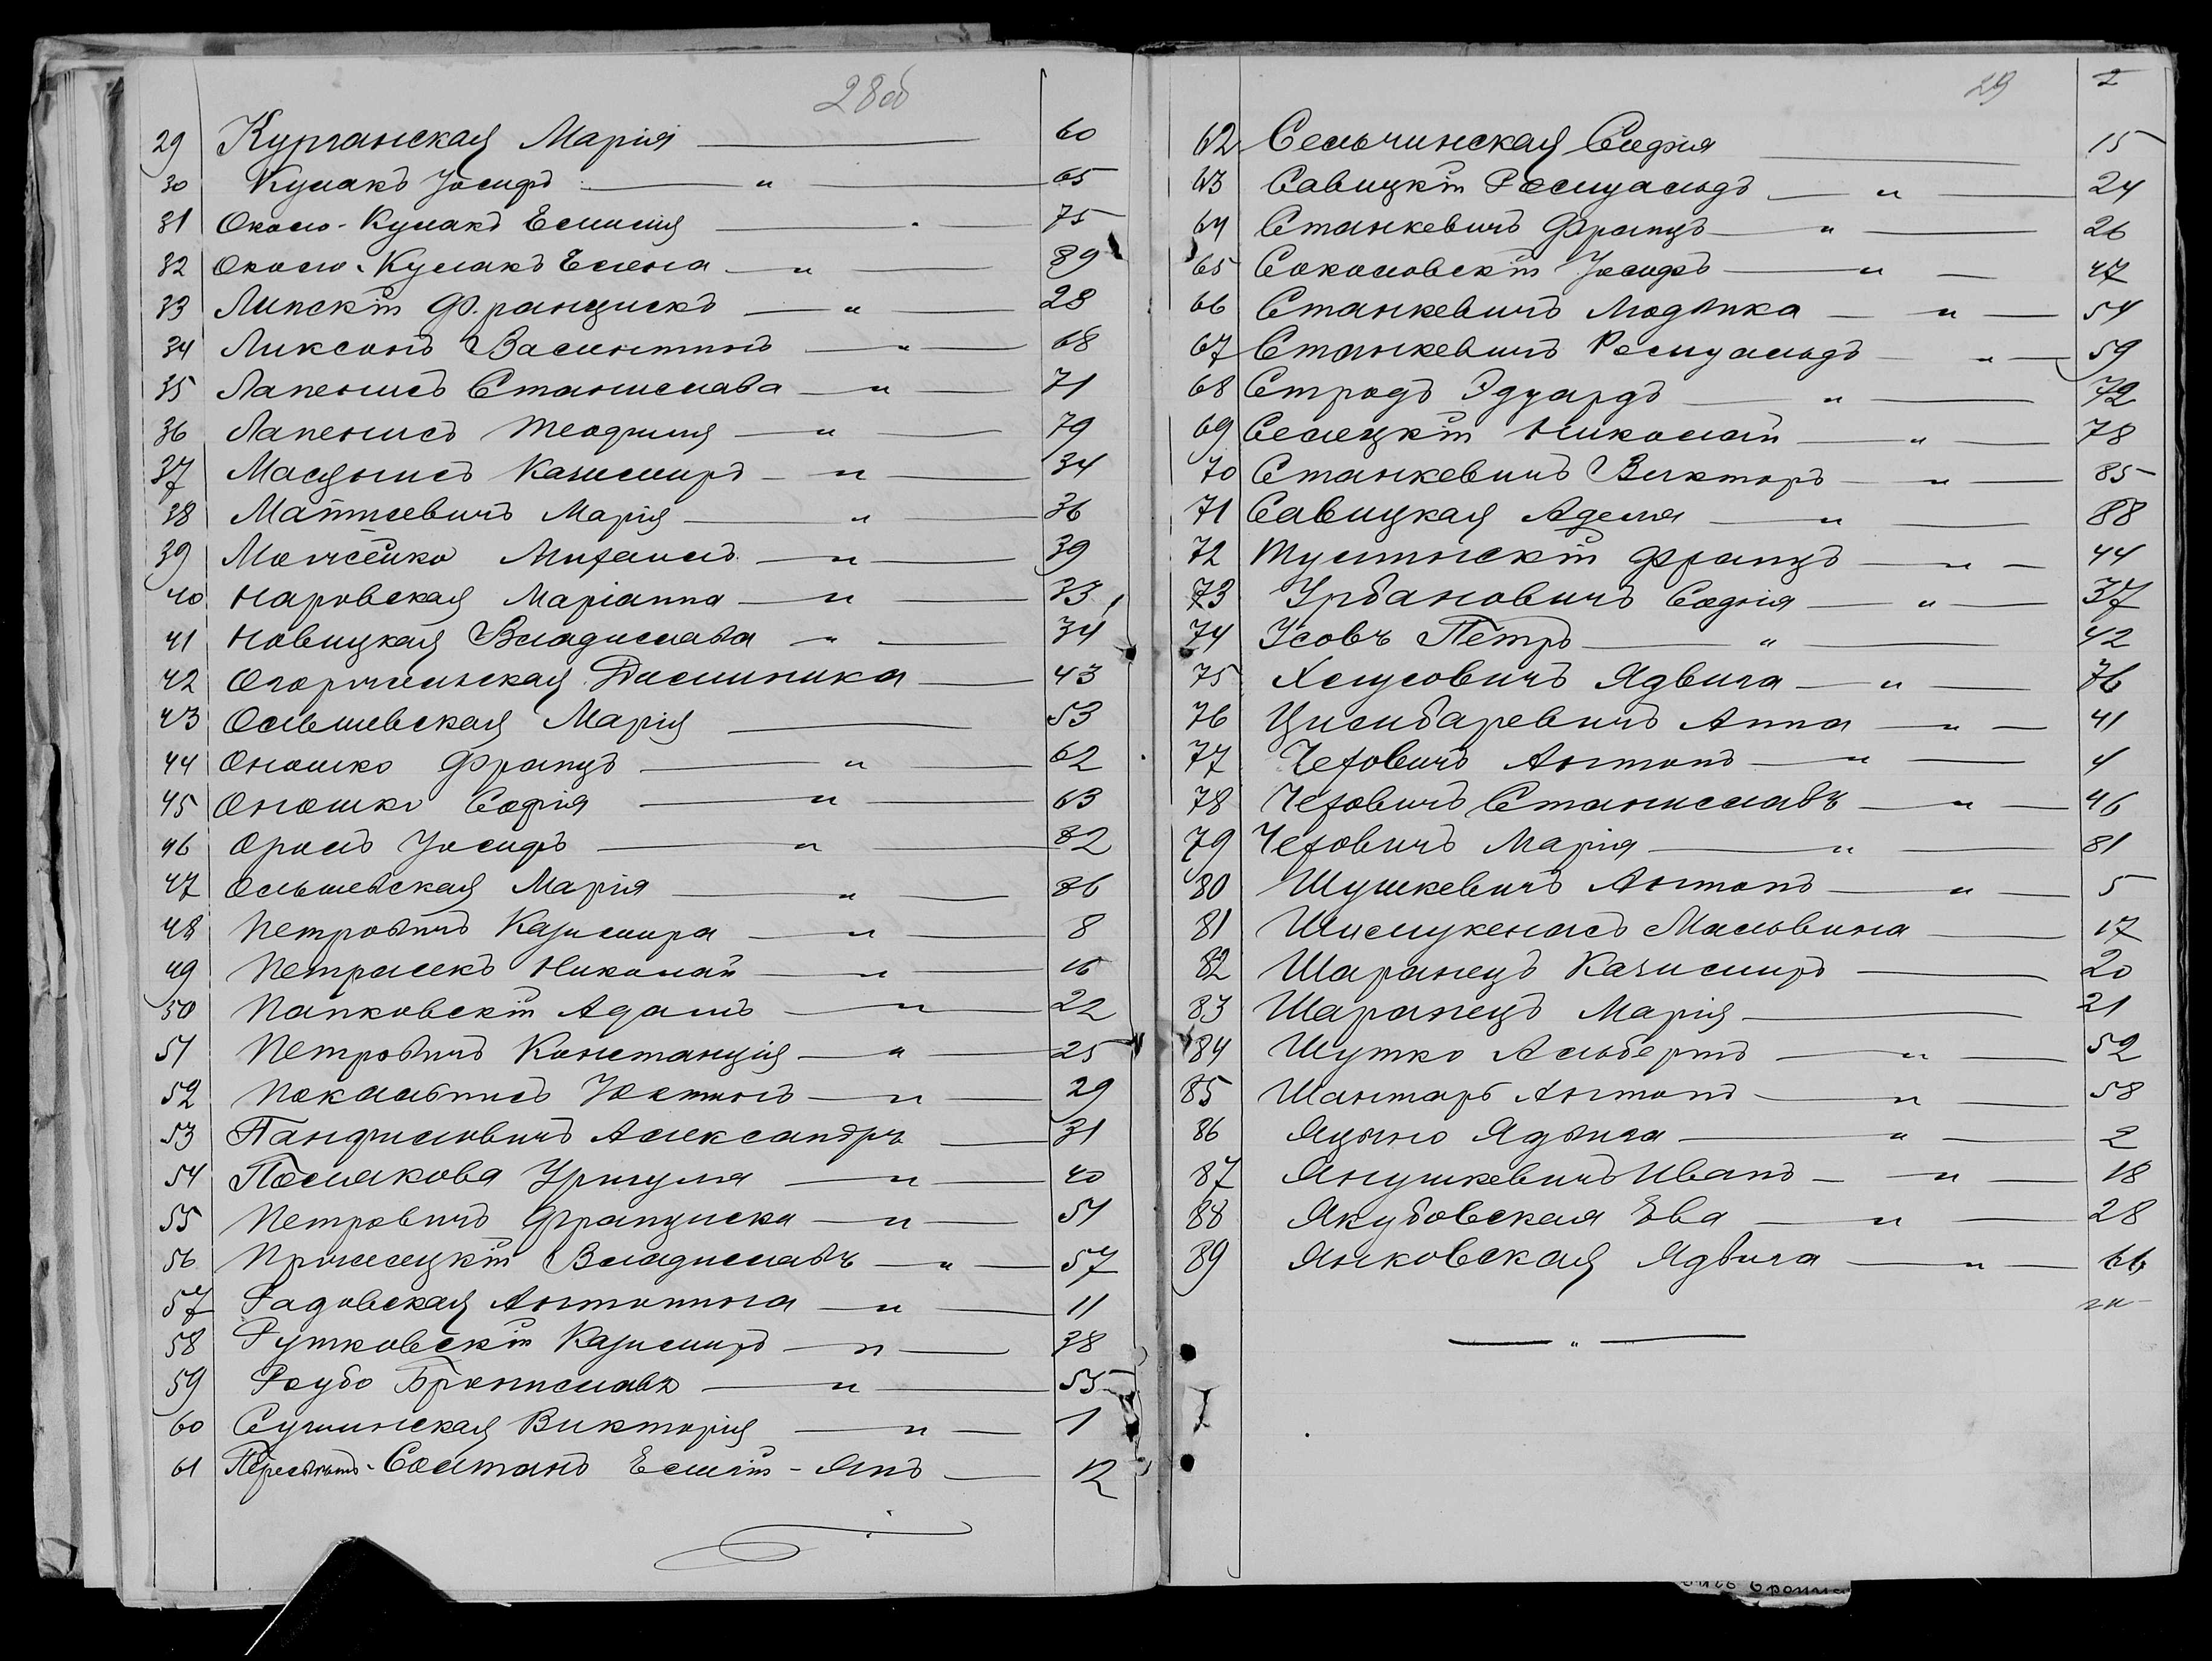 28об
29 Курганская Марія — 60
30 Кулакъ Іосифъ — " — 65
31 Около-Кулакъ Емилія — " — 75
32 Около-Кулакъ Елена — " — 89
33 Липскій Францискъ — " — 28
34 Ликсонъ Валентинъ — " — 68
35 Лапенисъ Станислава — " — 71
36 Лапенисъ Теофилія — " — 79
37 Казимиръ — " — 34
38 Матысевичъ Марія — " — 36
39 Мойсейко Михаилъ — " — 39
40 Наровская Маріанна — " — 33
41 Новицкая Владислава — " — 34
42 Доминика — 43
43 Ольшевская Марія — 53
44 Оношко Францъ — " — 62
45 Оношко Софія — " — 63
46 Орылъ Іосифъ — " — 82
47 Ольшевская Марія — " — 86
48 Петровичъ Казимира — " — 8
49 Николай — " — 16
50 Папковскій Адамъ — " — 22
51 Петровичъ Констанція — " — 25
52 Юстинъ — " — 29
53 Панфиловичъ Александръ — 31
54 Полякова Уршуля — " — 40
55 Петровичъ Франциска — " — 51
56 Владиславъ — " — 57
57 Радовская Антонина — " — 11
58 Рутковскій Казимиръ — " — 38
59 Роубо Брониславъ — " — 55
60 Викторія — " — 1
61 Солтанъ Емилій-Янъ — 12
29 2
62 Сельчинская Софія — 15
63 Савицкій Ромуальдъ — " — 24
64 Станкевичъ Францъ — " — 26
65 Соколовскій Іосифъ — " — 47
66 Станкевичъ Людвика — " — 54
67 Станкевичъ Ромуальдъ — " — 59
68 Стродъ Эдуардъ — " — 72
69 Селецкій Николай — " — 78
70 Станкевичъ Викторъ — " — 85
71 Савицкая Аделя — " — 88
72 Францъ — " — 44
73 Урбановичъ Софія — " — 37
74 Усовъ Петръ — " — 42
75 Ядвига — " — 76
76 Цимбаревичъ Анна — " — 41
77 Чеховичъ Антонъ — " — 4
78 Чеховичъ Станиславъ — " — 46
79 Чеховичъ Марія — " — 81
80 Шушкевичъ Антонъ — " — 5
81 Шимукенасъ Мальвина — 17
82 Шаранецъ Казимиръ — 20
83 Шаранецъ Марія — 21
84 Шутко Альбертъ — " — 52
85 Шантаръ Антонъ — " — 58
86 Яцыно Ядвига — " — 2
87 Янушкевичъ Иванъ — " — 18
88 Якубовская Ева — " — 28
89 Янковская Ядвига — " — 66
— " —